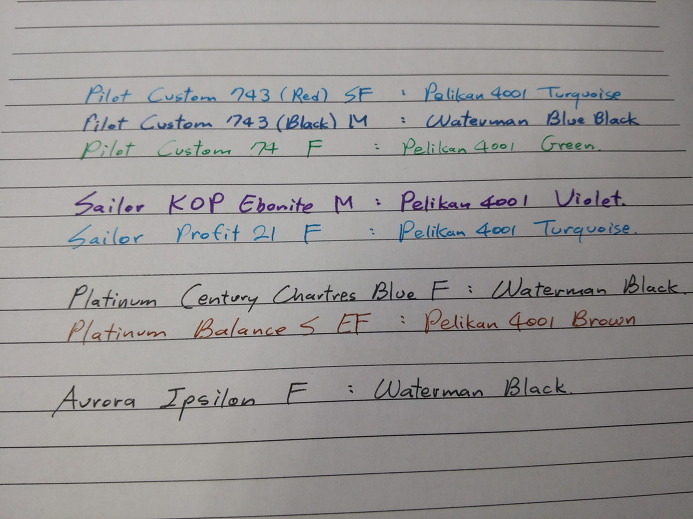 Pilot Custom 743 (Red) SF : Pelikan 4001 Turquoise
Pilot Custom 743 (Black) M : Waterman Blue Black
Pilot Custom 74 F : Pelikan 4001 Green.
Sailor KOP Ebonite M : Pelikan 4001 Violet.
Sailor Profit 21 F : Pelikan 4001 Turquoise.
Platinum Century Chartres Blue F : Waterman Black.
Platinum Balance S EF : Pelikan 4001 Brown
Aurora Ipsilon F : Waterman Black.